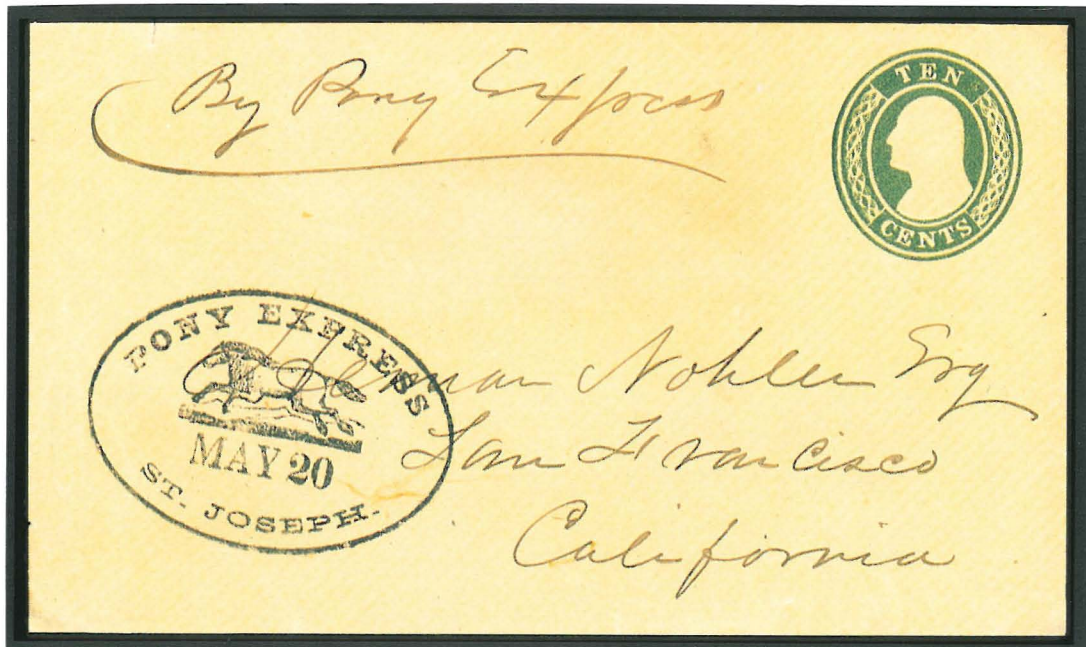 By Pony Express
TEN
CENTS
PONY EXPRESS
MAY 20
ST. JOSEPH.
Herman Nohler Esq
San Francisco
California